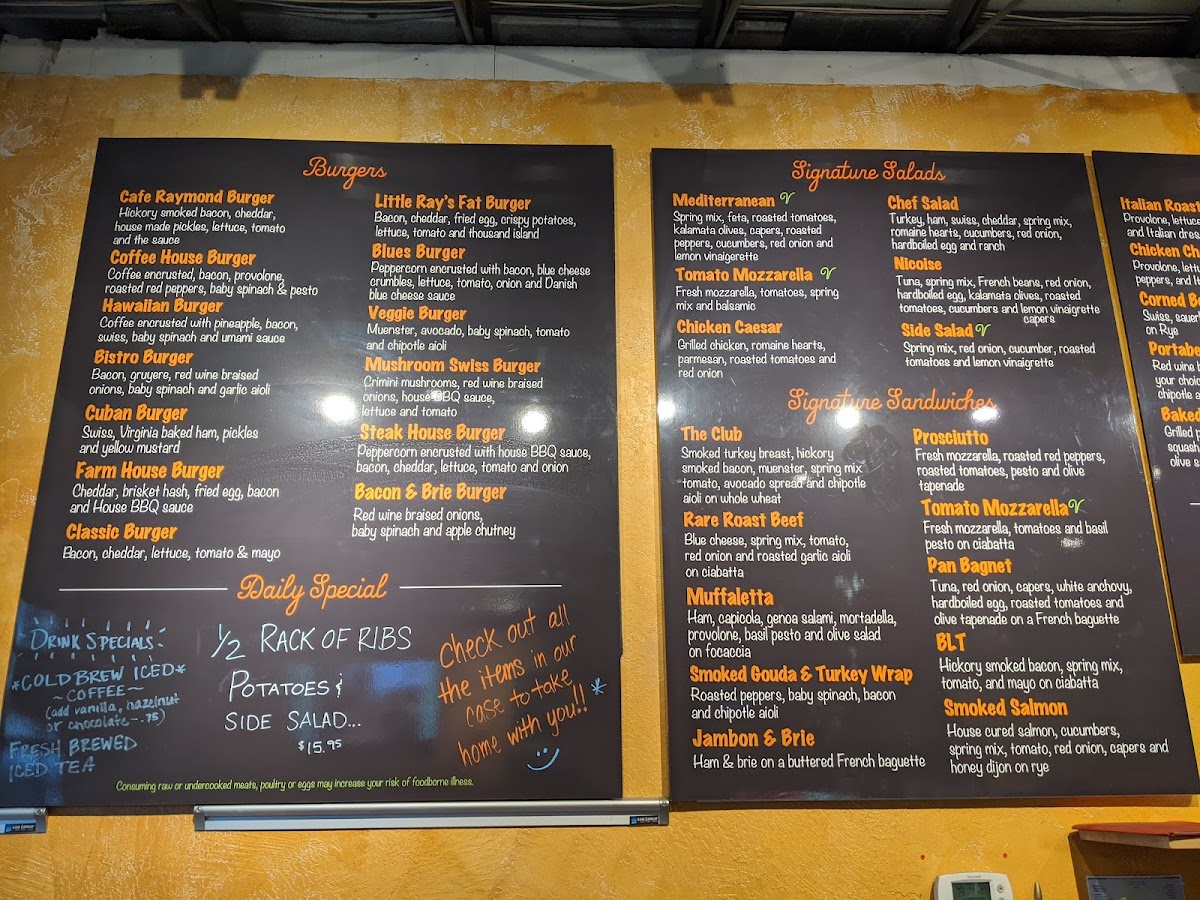 Burgers
Cafe Raymond Burger
Hickory smoked bacon, cheddar,
house made pickles, lettuce, tomato
and the sauce
Coffee House Burger
Coffee encrusted, bacon, provolone,
roasted red peppers, baby spinach & pesto
Hawaiian Burger
Coffee encrusted with pineapple, bacon,
swiss, baby spinach and umami sauce
Bistro Burger
Bacon, gruyere, red wine braised
onions, baby spinach and garlic aioli
Cuban Burger
Swiss, Virginia baked ham, pickles
and yellow mustard
Farm House Burger
Cheddar, brisket hash, fried egg, bacon
and House BBQ sauce
Classic Burger
Bacon, cheddar, lettuce, tomato & mayo
Little Ray's Fat Burger
Bacon, cheddar, fried egg, crispy potatoes,
lettuce, tomato and thousand island
Blues Burger
Peppercorn encrusted with bacon, blue cheese
crumbles, lettuce, tomato, onion and Danish
blue cheese sauce
Veggie Burger
Muenster, avocado, baby spinach, tomato
and chipotle aioli
Mushroom Swiss Burger
Crimini mushrooms, red wine braised
onions, house BBQ sauce,
lettuce and tomato
Steak House Burger
Peppercorn encrusted with house BBQ sauce,
bacon, cheddar, lettuce, tomato and onion
Bacon & Brie Burger
Red wine braised onions,
baby spinach and apple chutney
Daily Special
DRINK SPECIALS:
*COLD BREW ICED*
~COFFEE~
(add vanilla, hazelnut
or chocolate - .75)
FRESH BREWED
ICED TEA
1/2 RACK OF RIBS
POTATOES &
SIDE SALAD...
$15.95
Check out all
the items in our
case to take
home with you!! *
Consuming raw or undercooked meats, poultry or eggs may increase your risk of foodborne illness.
Signature Salads
Mediterranean V
Spring mix, feta, roasted tomatoes,
kalamata olives, capers, roasted
peppers, cucumbers, red onion and
lemon vinaigerette
Tomato Mozzarella V
Fresh mozzarella, tomatoes, spring
mix and balsamic
Chicken Caesar
Grilled chicken, romaine hearts,
parmesan, roasted tomatoes and
red onion
Chef Salad
Turkey, ham, swiss, cheddar, spring mix,
romaine hearts, cucumbers, red onion,
hardboiled egg and ranch
Nicoise
Tuna, spring mix, French beans, red onion,
hardboiled egg, kalamata olives, roasted
tomatoes, cucumbers and lemon vinaigrette
capers
Side Salad V
Spring mix, red onion, cucumber, roasted
tomatoes and lemon vinaigrette
Signature Sandwiches
The Club
Smoked turkey breast, hickory
smoked bacon, muenster, spring mix
tomato, avocado spread and chipotle
aioli on whole wheat
Rare Roast Beef
Blue cheese, spring mix, tomato,
red onion and roasted garlic aioli
on ciabatta
Muffaletta
Ham, capicola, genoa salami, mortadella,
provolone, basil pesto and olive salad
on focaccia
Smoked Gouda & Turkey Wrap
Roasted peppers, baby spinach, bacon
and chipotle aioli
Jambon & Brie
Ham & brie on a buttered French baguette
Prosciutto
Fresh mozzarella, roasted red peppers,
roasted tomatoes, pesto and olive
tapenade
Tomato Mozzarella V
Fresh mozzarella, tomatoes and basil
pesto on ciabatta
Pan Bagnet
Tuna, red onion, capers, white anchovy,
hardboiled egg, roasted tomatoes and
olive tapenade on a French baguette
BLT
Hickory smoked bacon, spring mix,
tomato, and mayo on ciabatta
Smoked Salmon
House cured salmon, cucumbers,
spring mix, tomato, red onion, capers and
honey dijon on rye
Italian Roast
Provolone, lettuce
and Italian dres
Chicken Ch
Provolone, lettu
peppers, and It
Corned Be
Swiss, sauer
on Rye
Portabe
Red wine b
your choic
chipotle a
Baked
Grilled p
squash
olive s